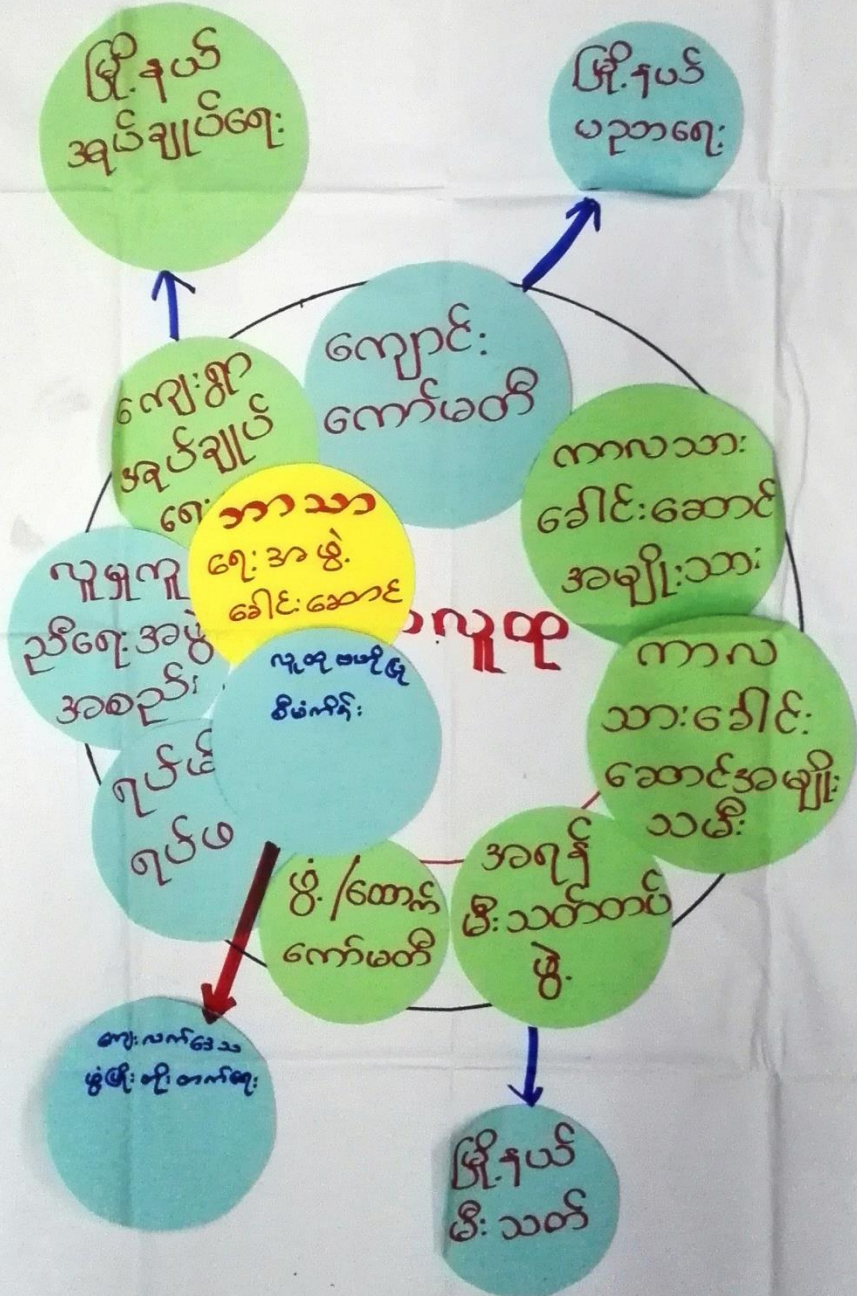 မြို့နယ်
အုပ်ချုပ်ရေး
မြို့နယ်
ပညာရေး
ကျောင်း
ကော်မတီ
ကျေးရွာ
အုပ်ချုပ်
ရေး
ကာလသား
ခေါင်းဆောင်
အမျိုးသား
ဘာသာ
ရေးအဖွဲ့
ခေါင်းဆောင်
လူမှုကူ
ညီရေးအဖွဲ့
အစည်း
လူထု
ကာလ
သားခေါင်း
ဆောင်အမျိုး
သမီး
လူထုဗဟိုပြု
စီမံကိန်း
ရပ်မိ
ရပ်ဖ
ဖွံ့/ထောက်
ကော်မတီ
အရန်
မီးသတ်တပ်
ဖွဲ့
ကျေးလက်ဒေသ
ဖွံ့ဖြိုးတိုးတက်ရေး
မြို့နယ်
မီးသတ်